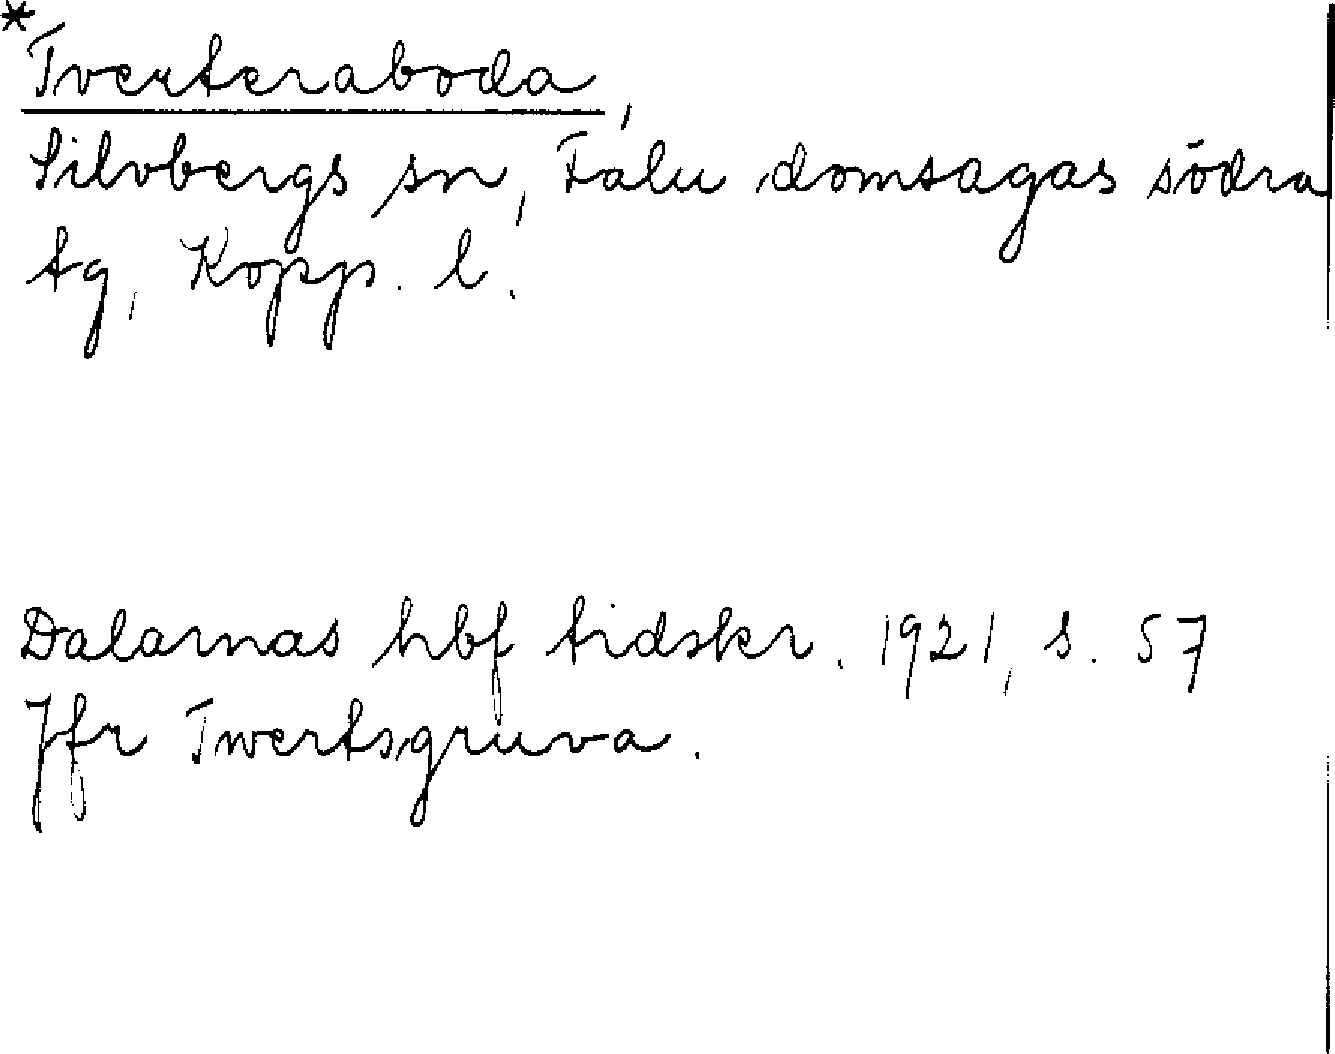 *
Tverteraboda,
Silvbergs sn, Falu domsagas södra
tg, Kopp. l.
Dalarnas hbf tidskr. 1921, s. 57
Jfr Twertsgruva.